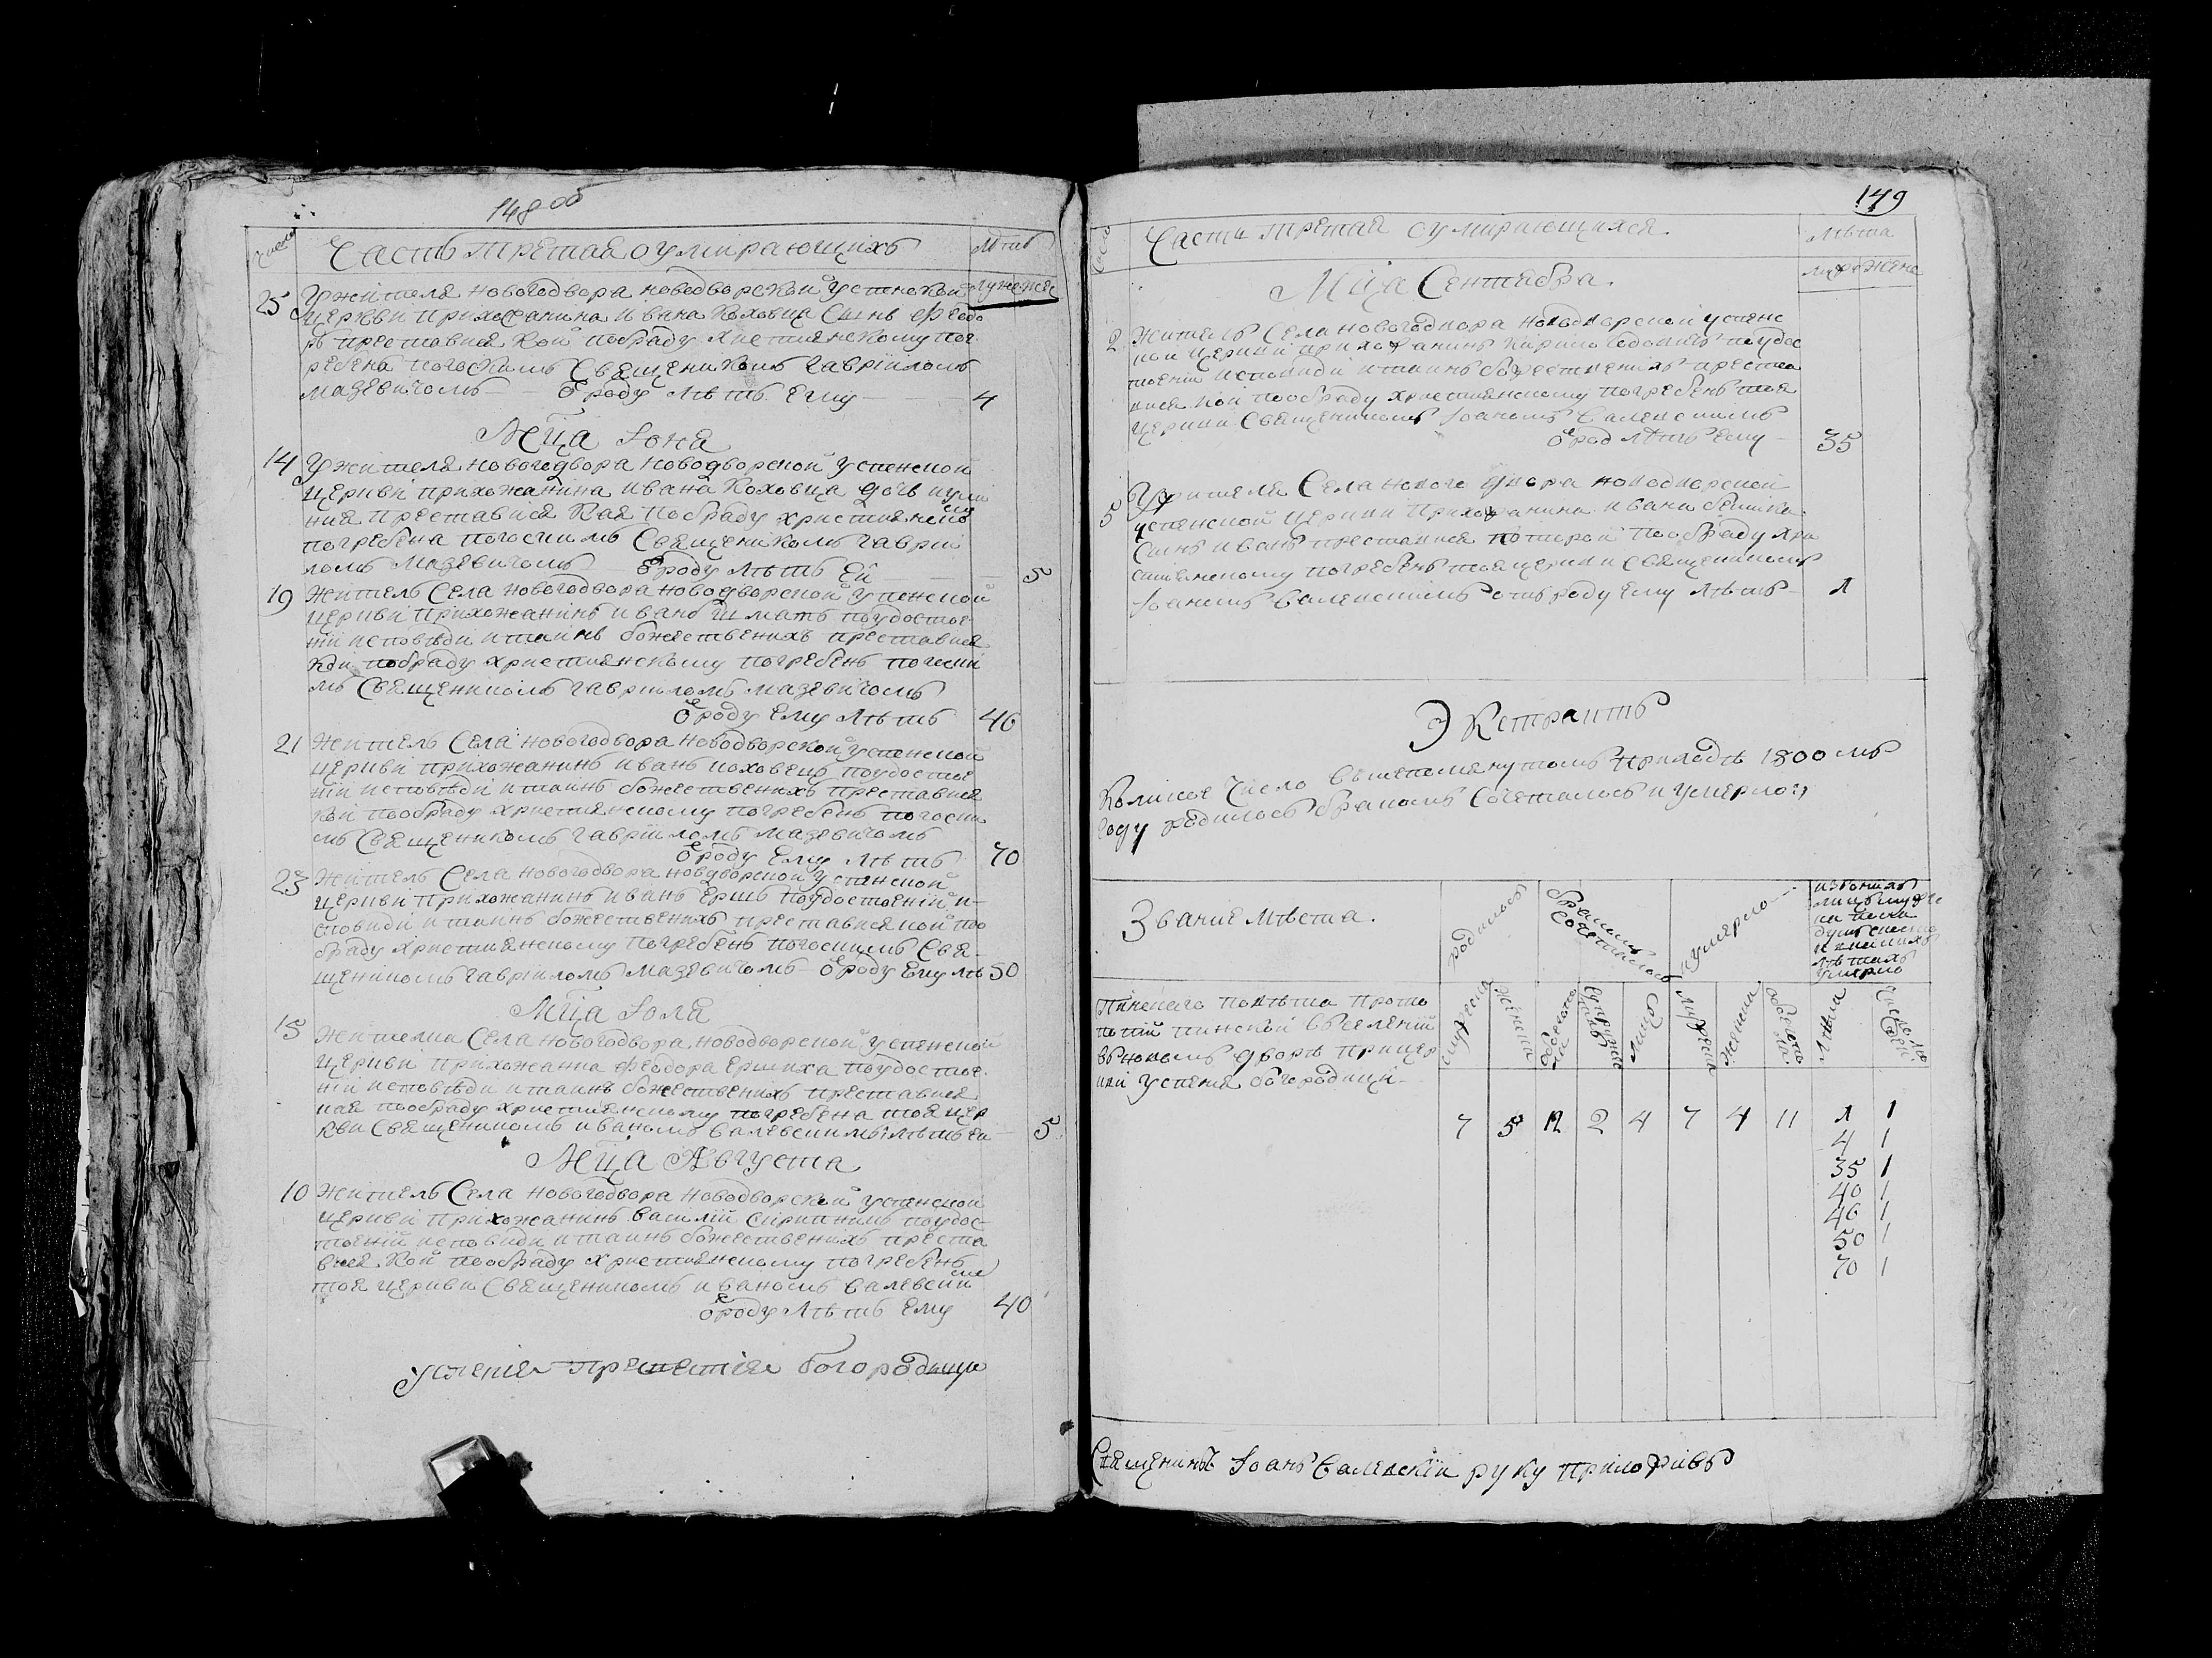 148 об
Числа Часть третая о умирающихъ Лѣтъ
муже жен
25 У жителя новогодвора новодворской успенской
церкви прихожанина Ивана Коховца сынъ Федо
ръ преставися кой пообраду християнскому пог
ребенъ погоскимъ Священикомъ Гаврииломъ
мазевичомъ — Ѿроду лѣтъ Ему — 4
Мца Іюня
14 У жителя новогодвора новодворской успенской
церкви прихожанина Ивана Коховца дочь
ния преставися кая пообраду християнско
му
погребена погоскимъ Священикомъ Гаврии
ломъ мазевичомъ Ѿроду лѣтъ Ей — 5
19 Житель Села новогодвора новодворской успенской
церкви прихожанинъ Иванъ поудостое
ній исповѣди итаинъ божественихъ преставися
кои пообраду християнскому погребенъ погоски
мъ Священикомъ Гаврииломъ мазевичомъ
Ѿроду Ему лѣтъ 46
21 Житель Села новогодвора новодворской успенской
церкви прихожанинъ Иванъ коховецъ поудостое
ніи исповѣди итаинъ божественихъ преставися
кои пообраду християнскому погребенъ погоски
мъ Священикомъ Гаврииломъ мазевичомъ
Ѿроду Ему лѣтъ 70
23 Житель Села новогодвора новодворской успенской
церкви прихожанинъ Иванъ Ершъ поудостоений и-
сповиди итаинъ божественихъ преставися кой поо
браду християнскому погребенъ погоскимъ Свя-
щеникомъ Гаврииломъ мазевичомъ — Ѿроду Ему лѣ 50
Мца Іюля
15 Жителка Села новогодвора новодворской успенской
церкви прихожанка Феодора Ершиха поудостое-
ній исповѣди итаинъ божественихъ преставися
кая пообраду християнскому погребена тоя цер
кви Священикомъ Иваномъ Валевскимъ лѣтъ Ей — 5
Мца Августа
10 Житель Села новогодвора новодворской успенской
церкви прихожанинъ Василій Скрипникъ поудос-
тоеній исповиди итаинъ божественихъ преста
вися кой пообраду християнскому погребенъ
тоя церкви Священикомъ Иваномъ Валевски
мъ
Ѿроду лѣтъ Ему 40
Успения Пречистия Богородицы
149
Числа Часть третая оумирающихся. Лѣта
муже жена
Мца Сентября.
2 Житель Села новогодвора новодворской успенс
кой церкви прихожанинъ Кирило поудос
тоений исповиди итаинъ божественихъ преста
вися кой пообраду християнскому погребенъ тоя
церкви Священикомъ Іоаномъ Валевскимъ
Ѿрод лѣтъ Ему — 35
5 У жителя Села нового двора новодворской
успенской церкви прихожанина Ивана
Синъ Иванъ преставися которой пообраду хри
стиянскому погребенъ тояцеркви Священикомъ
Іоаномъ Валевскимъ отъ роду Ему лѣтъ — 1
Экстрактъ
Коликое Число вишепомянутомъ приходѣ 1800 мъ
году родилось бракомъ Сочеталось и умерло:,
Звание мѣста. родилось бракомъ
Сочеталось умерло — изтоихъ
мужеска
ка пола
душъ
лѣтахъ
умерло
мужеска женска обоего Супружес Лицъ мужеска женска обоего Лѣта Число
Пинского повѣта прото
попій пинской вселеній
вновомъ дворѣ прицер
кви успеня богородици —
7 5 12 2 4 7 4 11 1 1
4 1
35 1
40 1
46 1
50 1
70 1
Священикъ Іоанъ Валевскій руку приложивъ